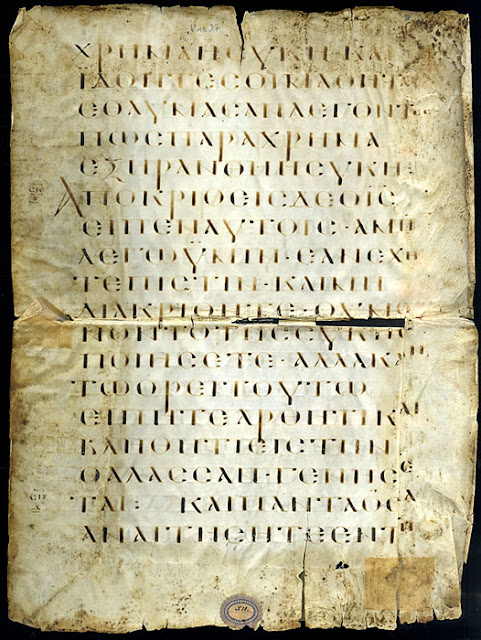 ΧΡΗΜΑΗϹΥΚΗ· ΚΑΙ
ΙΔΟΝΤΕϹΟΙΜΑΘΗΤΑ
ΕΘΑΥΜΑϹΑΝΛΕΓΟΝΤ
ΠΩϹΠΑΡΑΧΡΗΜΑ
ΕΞΗΡΑΝΘΗΗϹΥΚΗ·
ΑΠΟΚΡΙΘΕΙϹΔΕΟΙϹ
ΕΙΠΕΝΑΥΤΟΙϹ· ΑΜΗ
ΛΕΓΩΫΜΙΝ· ΕΑΝΕΧΗ
ΤΕΠΙϹΤΙΝ· ΚΑΙΜΗ
ΔΙΑΚΡΙΘΗΤΕ· ΟΥΜΟ
ΝΟΝΤΟΤΗϹϹΥΚΗϹ
ΠΟΙΗϹΕΤΕ· ΑΛΛΑΚΑΝ
ΤΩΟΡΕΙΤΟΥΤΩ
ΕΙΠΗΤΕΑΡΘΗΤΙΚΑΙ
ΒΛΗΘΗΤΙΕΙϹΤΗΝ
ΘΑΛΑϹϹΑΝ· ΓΕΝΗϹΕ
ΤΑΙ: ΚΑΙΠΑΝΤΑΟϹΑ
ΑΝΑΙΤΗϹΗΤΕΕΝΤΗ